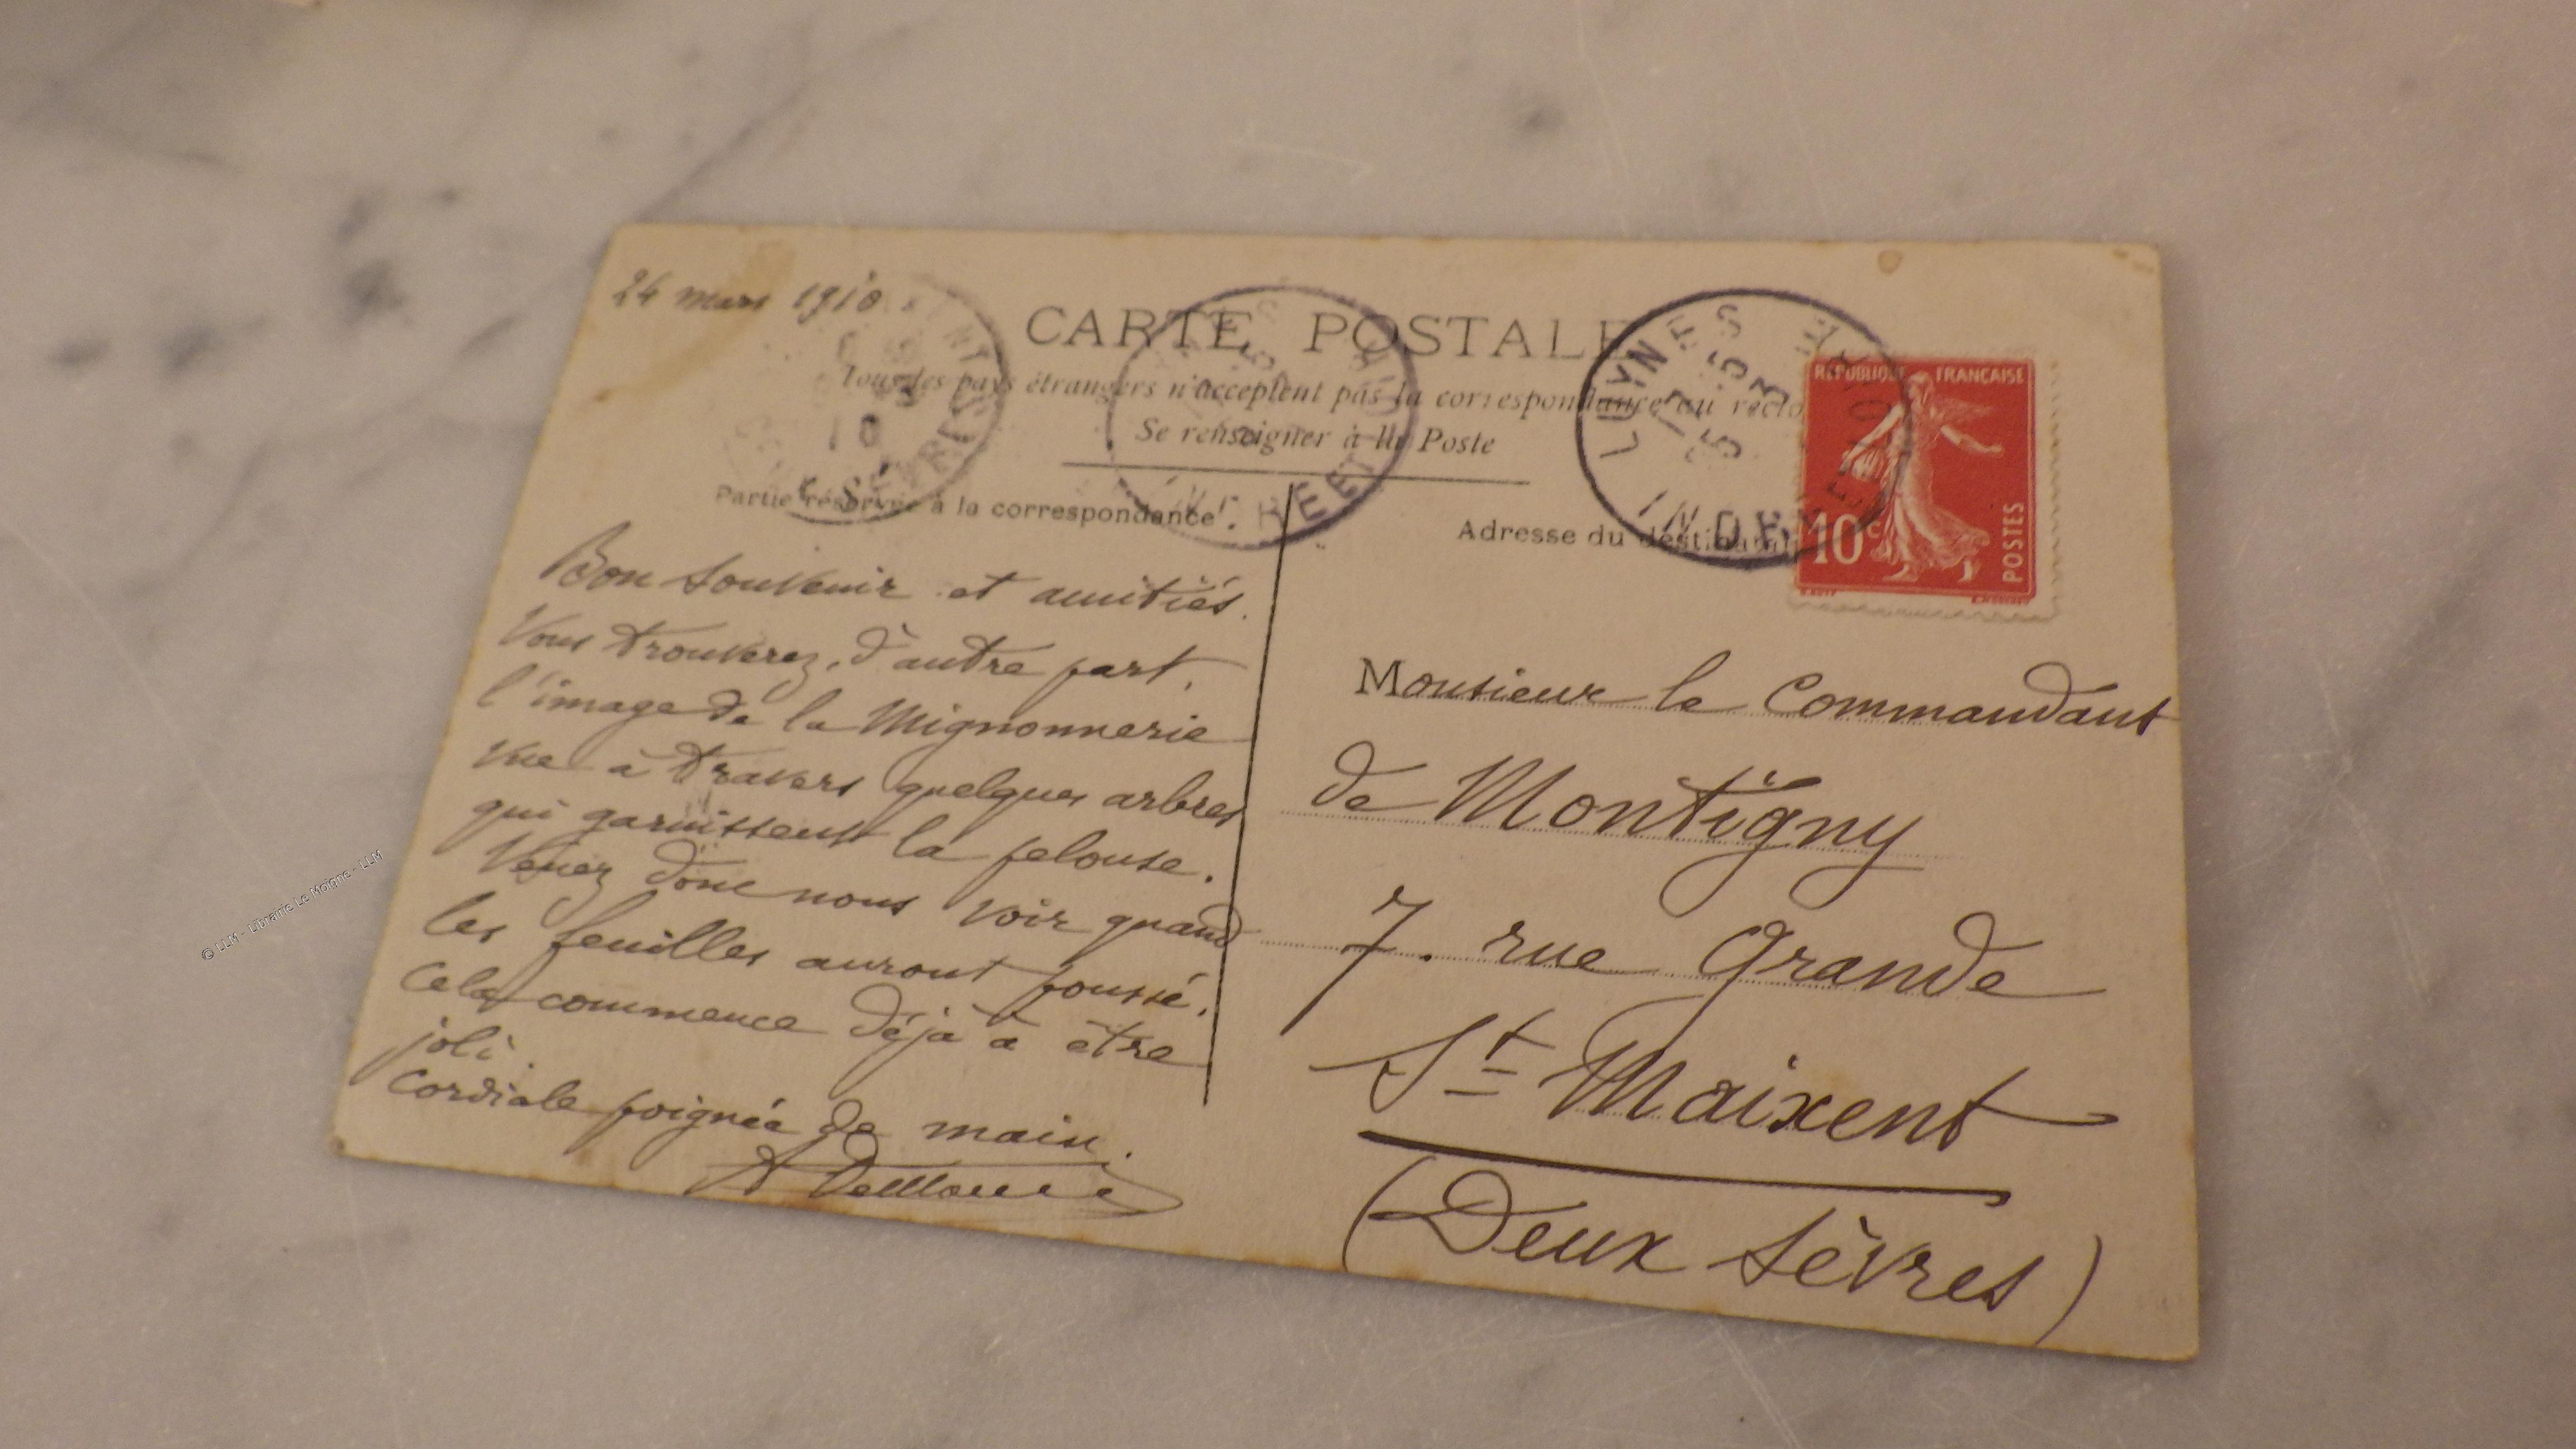 24 mars 1910
CARTE POSTALE
Tous les pays étrangers n'acceptent pas la correspondance au recto
Se renseigner à la Poste
Partie réservée à la correspondance
Adresse du destinatai
LUYNES
17 55
25 3
INDRE ET LOIRE
10
SÈVRES
ET
REPUBLIQUE FRANCAISE
10c
POSTES
Bon souvenir et amitiés.
Vous trouverez, d'autre part,
l'image de la Mignonnerie
vue à travers quelques arbres
qui garnissent la pelouse.
Venez donc nous voir quand
les feuilles auront poussé.
Cela commence déjà à être
joli.
Cordiale poignée de main.
Monsieur le Commandant
de Montigny
7. rue Grande
St Maixent
(Deux Sèvres)
© LLM - Librairie Le Moigne - LLM